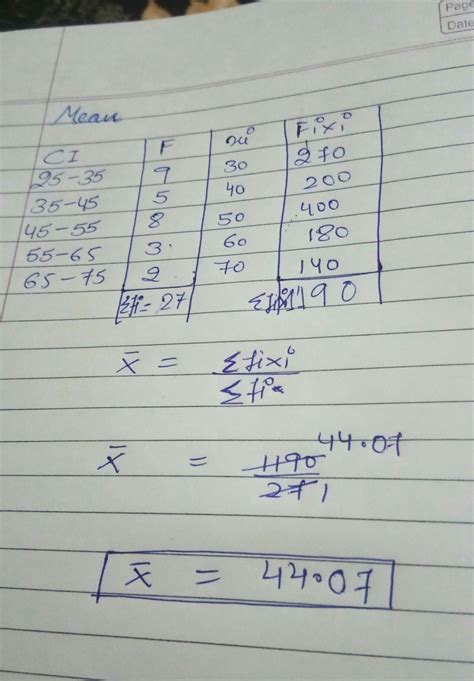 Page
Date
Mean
CI F xi Fixi
25-35 9 30 270
35-45 5 40 200
45-55 8 50 400
55-65 3 60 180
65-75 2 70 140
Σfi = 27 Σfixi 1190
x̄ = Σfixi
Σfi
x̄ = 1190 44.07
27 1
x̄ = 44.07